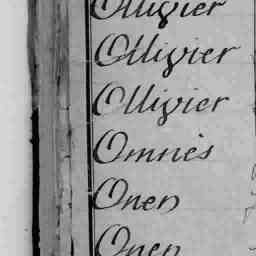 Ollivier
Ollivier
Ollivier
Omnès
Onen
Onen